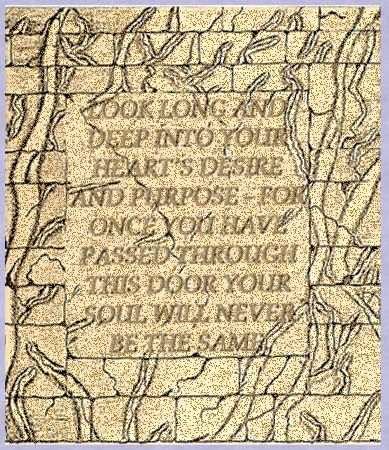 LOOK LONG AND
DEEP INTO YOUR
HEART'S DESIRE
AND PURPOSE - FOR
ONCE YOU HAVE
PASSED THROUGH
THIS DOOR YOUR
SOUL WILL NEVER
BE THE SAME.